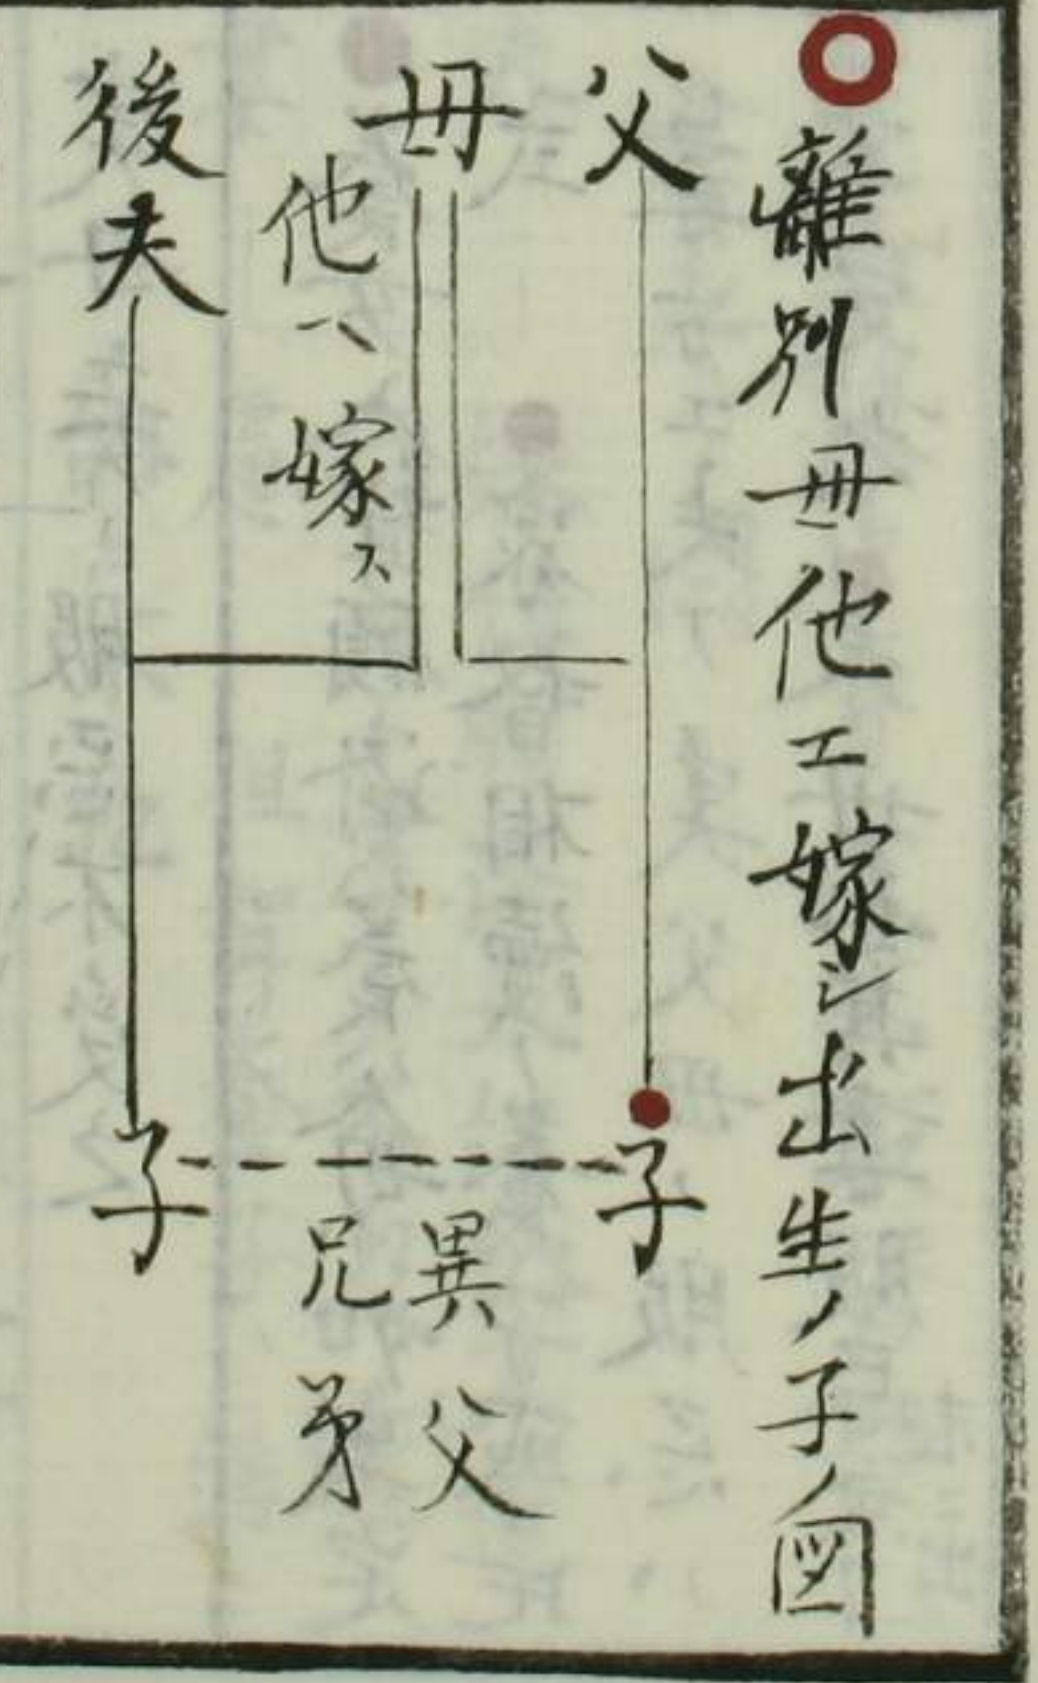 離別母他エ嫁シ出生ノ子ノ図
父
母
他ヘ嫁ス
後夫
子
異父
兄弟
子